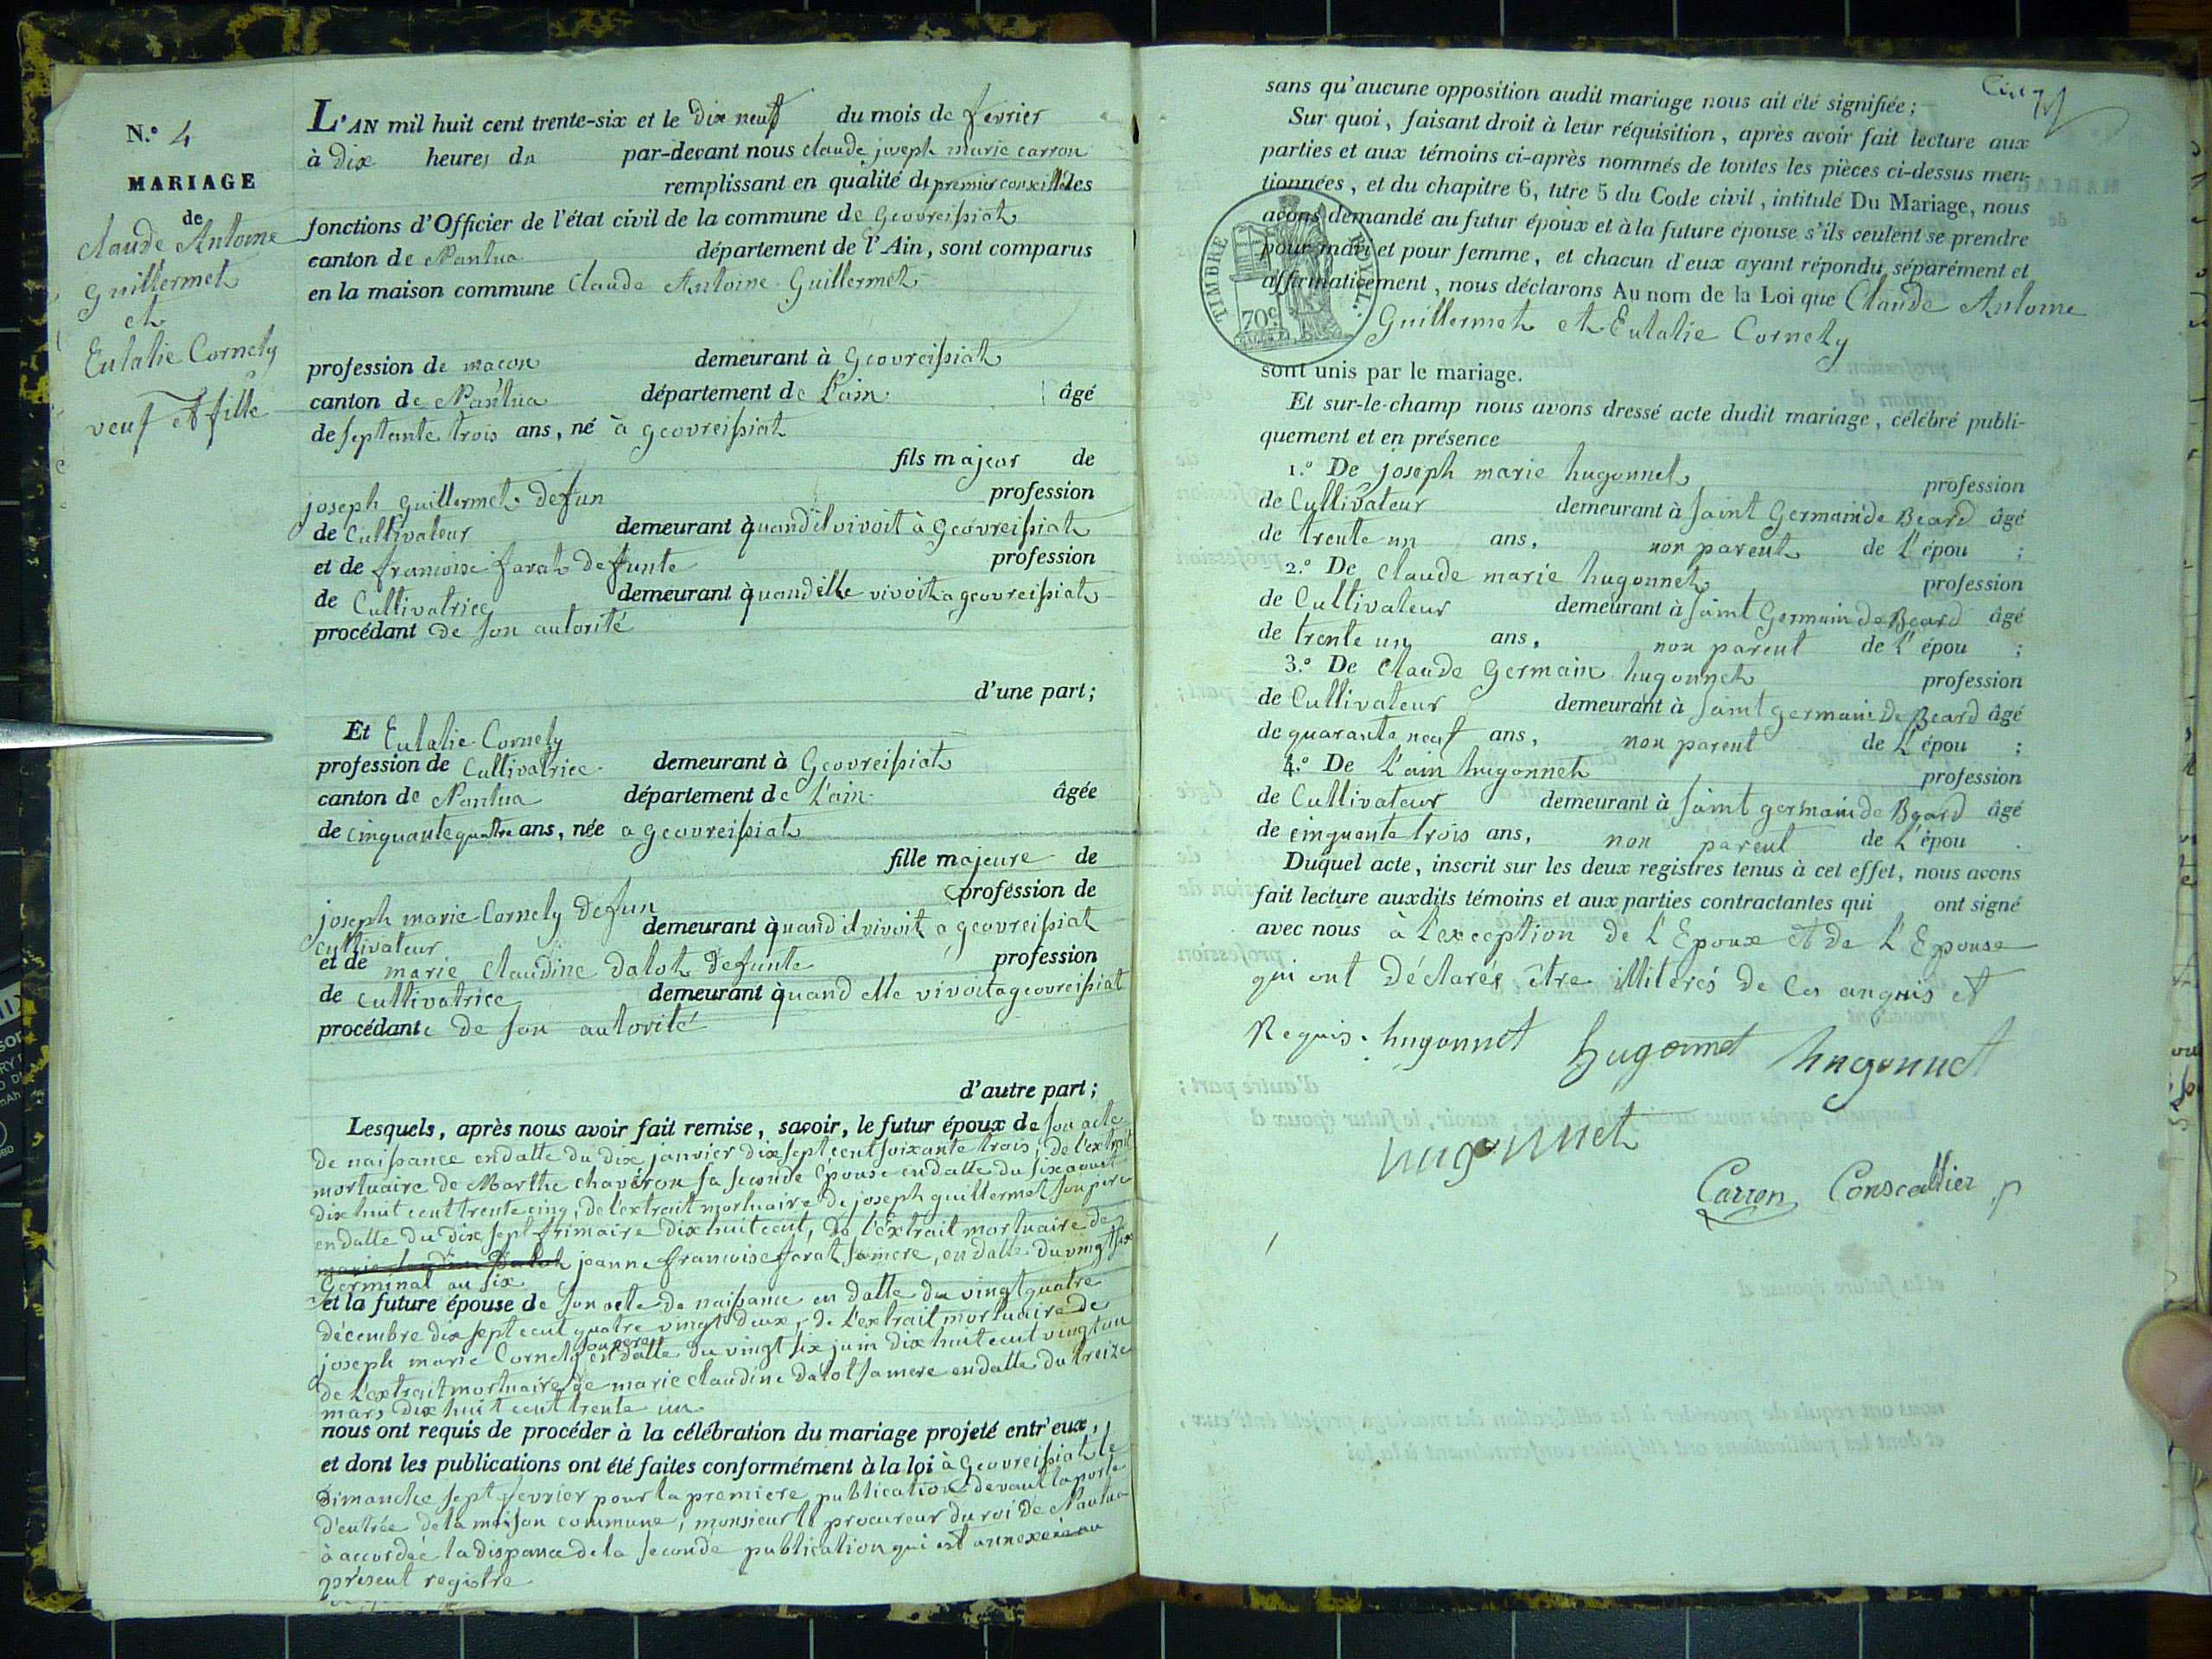 N.o 4
MARIAGE
de
Claude Antoine
Guillermet
et
Eutalie Cornely
veuf et fille
L'AN mil huit cent trente-six et le Dix neuf du mois de fevrier
à Dix heures du par-devant nous claude joseph marie carron
remplissant en qualité de premier conseillé les
fonctions d'Officier de l'état civil de la commune de Geovreissiat
canton de Nantua département de l'Ain, sont comparus
en la maison commune Claude Antoine Guillermet
profession de macon demeurant à Geovreissiat
canton de Nantua département de L'ain âgé
de septante trois ans, né à geovreissiat
fils majeur de
joseph guillermet defun profession
de Cultivateur demeurant à quand il vivoit à Geovreissiat
et de francoise farat defunte profession
de Cultivatrice demeurant à quand elle vivoit a geovreissiat
procédant de son autorité
d'une part;
Et Eutalie Cornely
profession de Cultivatrice demeurant à Geovreissiat
canton de Nantua département de L'ain âgée
de cinquante quatre ans, née a geovreissiat
fille majeure de
joseph marie Cornely defun profession de
cultivateur demeurant à quand il vivoit a geovreissiat
et de marie Claudine dalot defunte profession
de cultivatrice demeurant à quand elle vivoit a geovreissiat
procédante de son autorité
d'autre part;
Lesquels, après nous avoir fait remise, savoir, le futur époux de son acte
de naissance en datte du dix janvier dix sept cent soixante trois, de l'extrait
mortuaire de Marthe chaveron sa seconde Epouse en datte du six aoust
dix huit cent trente cinq, de l'extrait mortuaire de joseph guillermet son pere
en datte du dix sept frimaire dix huit cent, de l'extrait mortuaire de
jeanne francoise farat sa mere, en datte du vingt six
Germinal an six
et la future épouse de son acte de naissance en datte du vingt quatre
décembre dix sept cent quatre vingt deux, de l'extrait mortuaire de
joseph marie Cornely son pere en datte du vingt six juin dix huit cent vingt un
de L'extrait mortuaire de marie claudine dalot sa mere en datte du treize
mars dix huit cent trente un
nous ont requis de procéder à la célébration du mariage projeté entr'eux,
et dont les publications ont été faites conformément à la loi à Geovreissiat le
Dimanche sept fevrier pour la premiere publication devant la porte
d'entrée de la maison commune, monsieur le procureur du roi de Nantua
à accordée la dispance de la seconde publication qui est annexée au
présent registre
sans qu'aucune opposition audit mariage nous ait été signifiée;
Sur quoi, faisant droit à leur réquisition, après avoir fait lecture aux
parties et aux témoins ci-après nommés de toutes les pièces ci-dessus men-
tionnées, et du chapitre 6, titre 5 du Code civil, intitulé Du Mariage, nous
avons demandé au futur époux et à la future épouse s'ils veulent se prendre
pour mari et pour femme, et chacun d'eux ayant répondu séparément et
affirmativement, nous déclarons Au nom de la Loi que Claude Antoine
Guillermet et Eutalie Cornely
TIMBRE ROYAL.
70c
sont unis par le mariage.
Et sur-le-champ nous avons dressé acte dudit mariage, célébré publi-
quement et en présence
1.o De joseph marie hugonnet profession
de Cultivateur demeurant à saint Germain de Beard âgé
de trente un ans, non parent de L'épou ;
2.o De Claude marie hugonnet profession
de Cultivateur demeurant à saint Germain de Beard âgé
de trente un ans, non parent de L'épou ;
3.o De Claude Germain hugonnet profession
de Cultivateur demeurant à saint germain de Beard âgé
de quarante neuf ans, non parent de L'épou ;
4.o De L'ain hugonnet profession
de Cultivateur demeurant à saint germain de Beard âgé
de cinquante trois ans, non parent de L'épou .
Duquel acte, inscrit sur les deux registres tenus à cet effet, nous avons
fait lecture auxdits témoins et aux parties contractantes qui ont signé
avec nous à L'exception de L'Epoux et de L'Epouse
qui ont Déclarés être illiterés de Ces anquis et
Requis. hugonnet hugonnet hugonnet
hugonnet
Carron Conseallier